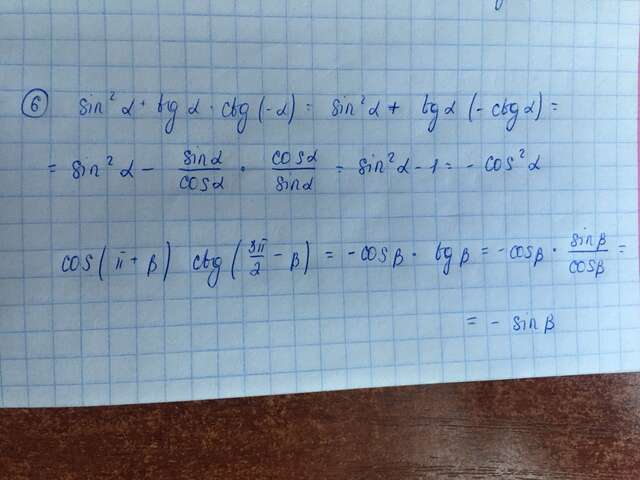 6 sin²α + tg α · ctg (-α) = sin²α + tgα (-ctgα) =
= sin²α - sinα/cosα · cosα/sinα = sin²α - 1 = - cos²α
cos(π + β) ctg(3π/2 - β) = -cosβ · tgβ = -cosβ · sinβ/cosβ =
= - sinβ